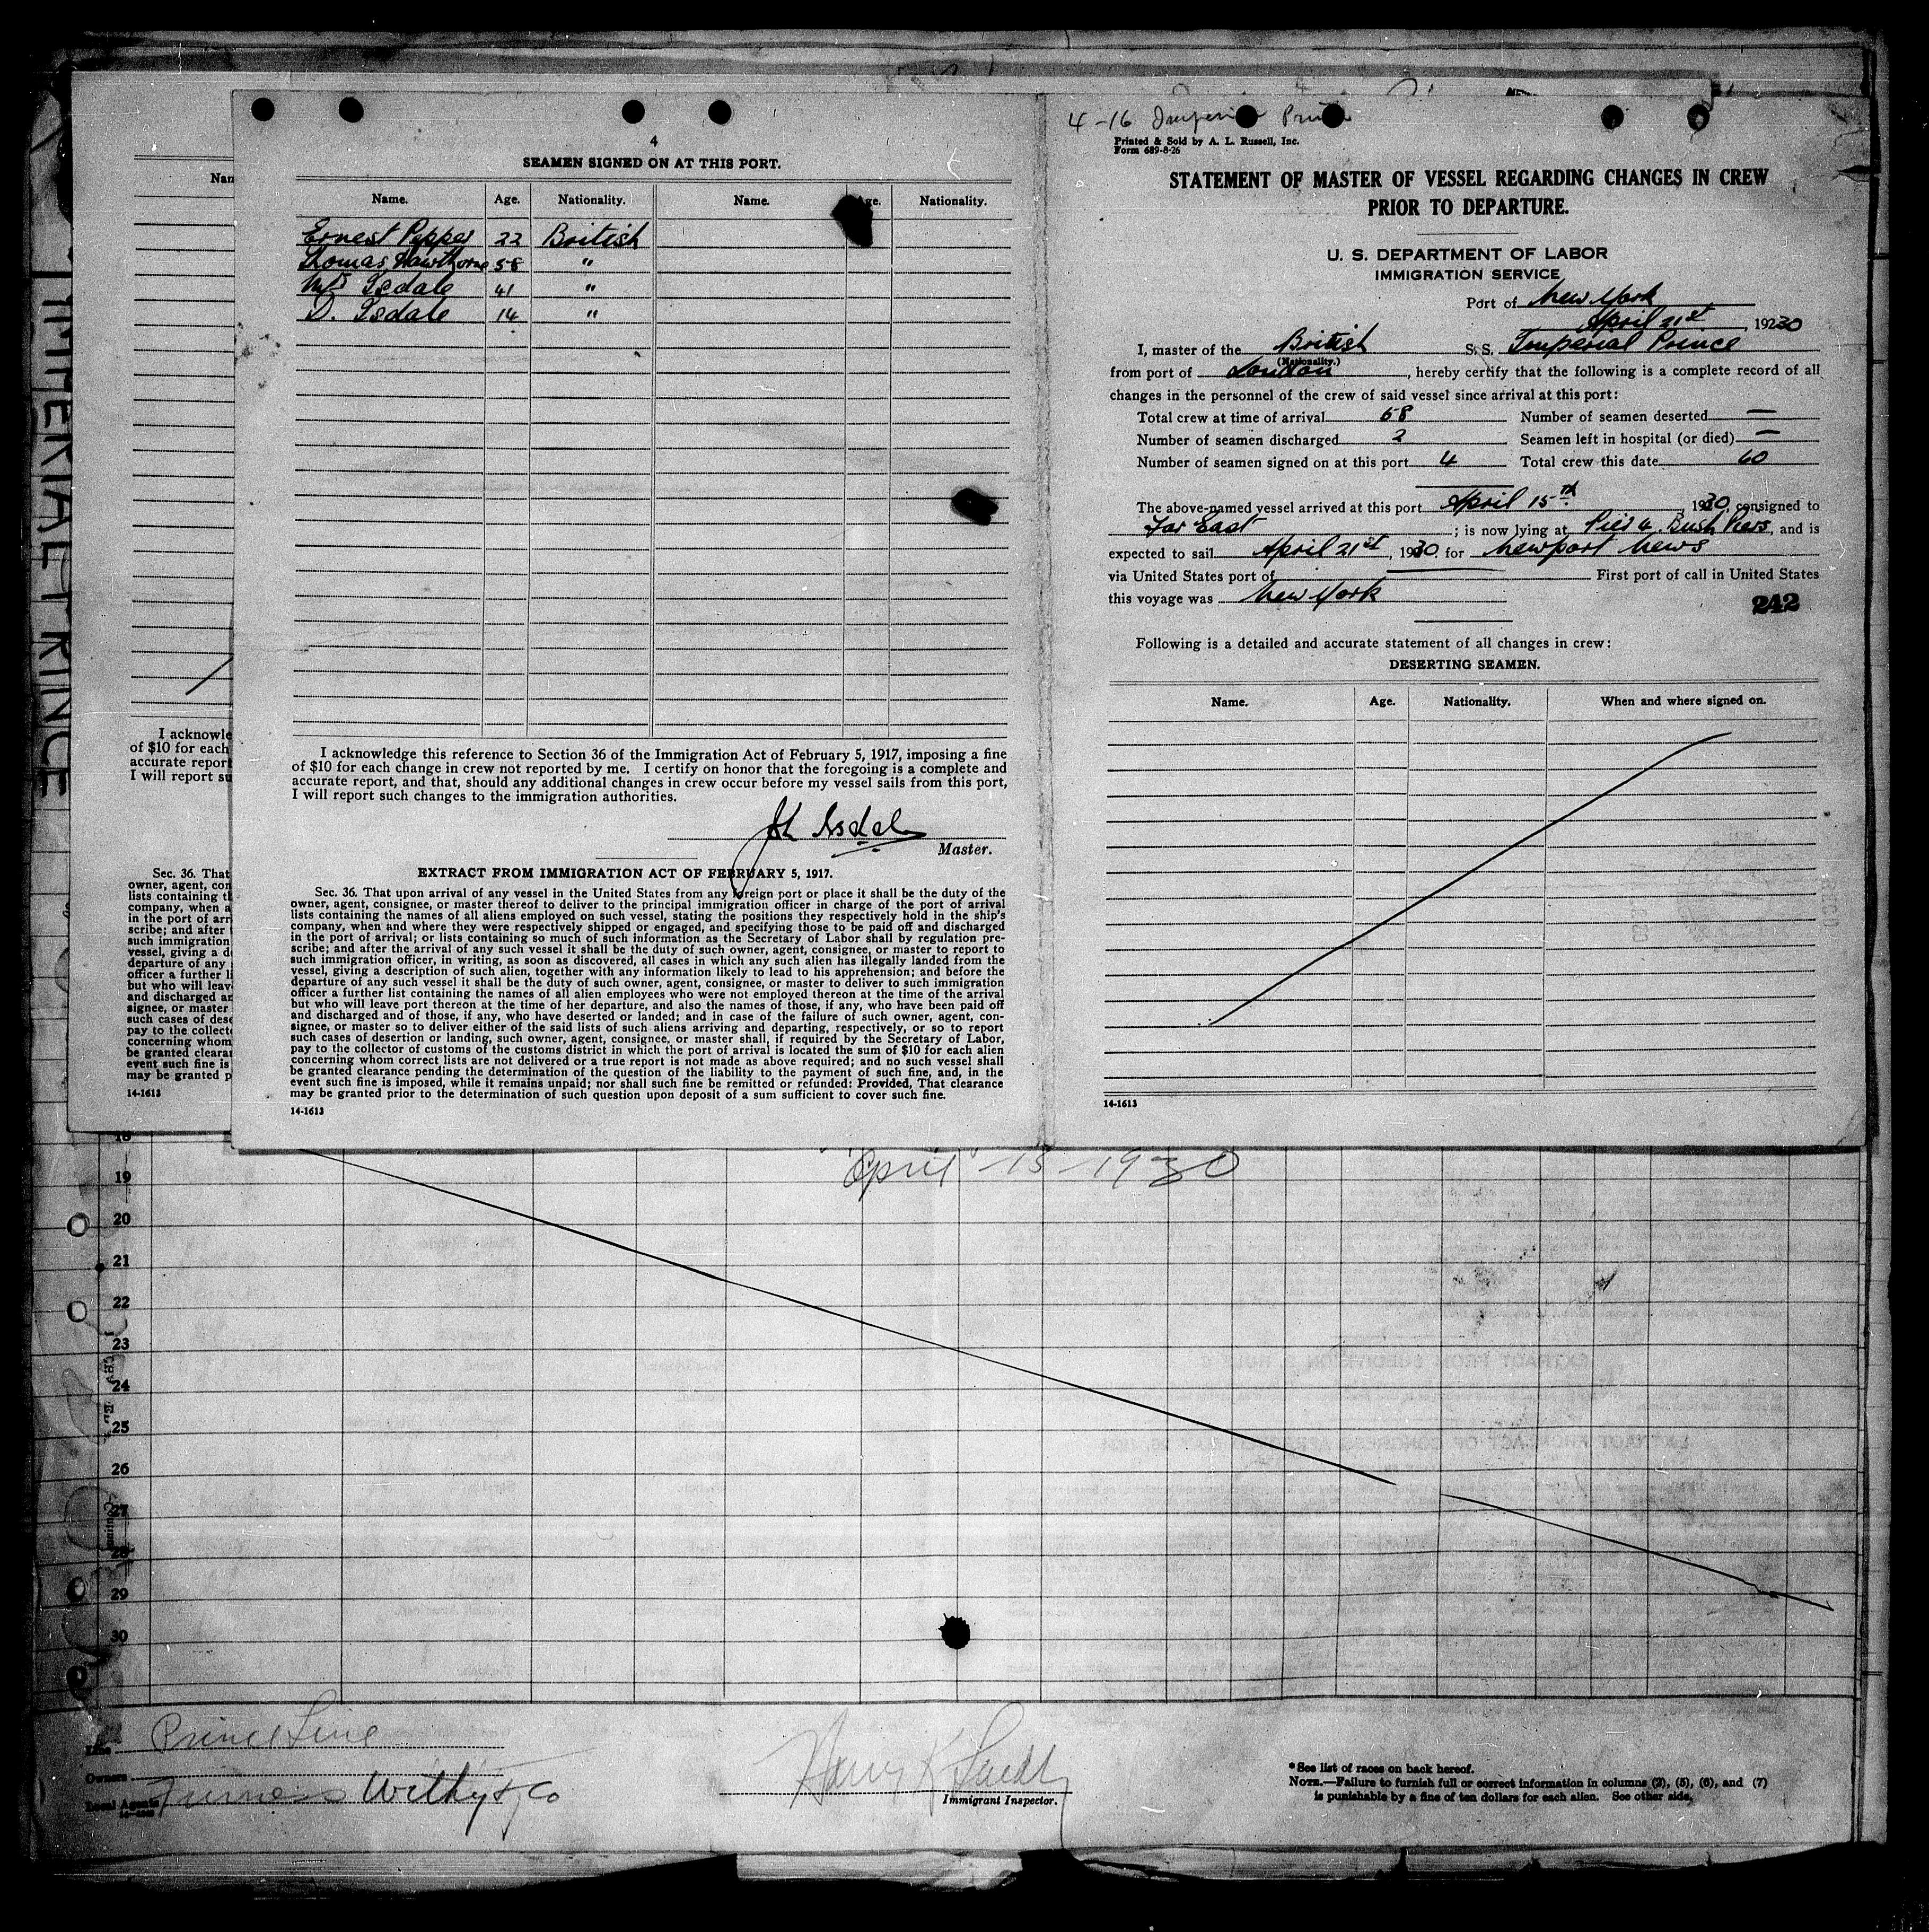 IMPERIAL PRINCE
Nam
I acknowle
of $10 for each
accurate report
I will report su
Sec. 36. That
owner, agent, con
lists containing th
company, when a
in the port of arri
scribe; and after t
such immigration
vessel, giving a de
departure of any
officer a further li
but who will leav
and discharged an
signee, or master
such cases of dese
pay to the collecto
concerning whom
be granted cleara
event such fine is
may be granted p
14-1613
4
SEAMEN SIGNED ON AT THIS PORT.
Name. Age. Nationality. Name. Age. Nationality.
Ernest Pepper 22 British
Thomas Hawthorne 58 "
Mrs Isdale 41 "
D. Isdale 14 "
I acknowledge this reference to Section 36 of the Immigration Act of February 5, 1917, imposing a fine
of $10 for each change in crew not reported by me. I certify on honor that the foregoing is a complete and
accurate report, and that, should any additional changes in crew occur before my vessel sails from this port,
I will report such changes to the immigration authorities.
Isdale
Master.
EXTRACT FROM IMMIGRATION ACT OF FEBRUARY 5, 1917.
Sec. 36. That upon arrival of any vessel in the United States from any foreign port or place it shall be the duty of the
owner, agent, consignee, or master thereof to deliver to the principal immigration officer in charge of the port of arrival
lists containing the names of all aliens employed on such vessel, stating the positions they respectively hold in the ship's
company, when and where they were respectively shipped or engaged, and specifying those to be paid off and discharged
in the port of arrival; or lists containing so much of such information as the Secretary of Labor shall by regulation pre-
scribe; and after the arrival of any such vessel it shall be the duty of such owner, agent, consignee, or master to report to
such immigration officer, in writing, as soon as discovered, all cases in which any such alien has illegally landed from the
vessel, giving a description of such alien, together with any information likely to lead to his apprehension; and before the
departure of any such vessel it shall be the duty of such owner, agent, consignee, or master to deliver to such immigration
officer a further list containing the names of all alien employees who were not employed thereon at the time of the arrival
but who will leave port thereon at the time of her departure, and also the names of those, if any, who have been paid off
and discharged and of those, if any, who have deserted or landed; and in case of the failure of such owner, agent, con-
signee, or master so to deliver either of the said lists of such aliens arriving and departing, respectively, or so to report
such cases of desertion or landing, such owner, agent, consignee, or master shall, if required by the Secretary of Labor,
pay to the collector of customs of the customs district in which the port of arrival is located the sum of $10 for each alien
concerning whom correct lists are not delivered or a true report is not made as above required; and no such vessel shall
be granted clearance pending the determination of the question of the liability to the payment of such fine, and, in the
event such fine is imposed, while it remains unpaid; nor shall such fine be remitted or refunded: Provided, That clearance
may be granted prior to the determination of such question upon deposit of a sum sufficient to cover such fine.
14-1613
4-16 Imperial Prince
Printed & Sold by A. L. Russell, Inc.
Form 689-8-26
STATEMENT OF MASTER OF VESSEL REGARDING CHANGES IN CREW
PRIOR TO DEPARTURE.
U. S. DEPARTMENT OF LABOR
IMMIGRATION SERVICE
Port of New York
April 21st, 19230
I, master of the British S. S. Imperial Prince
(Nationality.)
from port of London, hereby certify that the following is a complete record of all
changes in the personnel of the crew of said vessel since arrival at this port:
Total crew at time of arrival 58 Number of seamen deserted —
Number of seamen discharged 2 Seamen left in hospital (or died) —
Number of seamen signed on at this port 4 Total crew this date 60
The above-named vessel arrived at this port April 15th 1930, consigned to
Far East; is now lying at Pier 4 Bush Piers, and is
expected to sail April 21st, 1930 for Newport News
via United States port of — First port of call in United States
this voyage was New York
242
Following is a detailed and accurate statement of all changes in crew:
DESERTING SEAMEN.
Name. Age. Nationality. When and where signed on.
14-1613
April -15-1930
18
19
20
21
22
23
24
25
26
27
28
29
30
Line Prince Line
Owners
Local Agents Furness Withy & Co
Immigrant Inspector.
*See list of races on back hereof.
NOTE.—Failure to furnish full or correct information in columns (2), (5), (6), and (7)
is punishable by a fine of ten dollars for each alien. See other side.